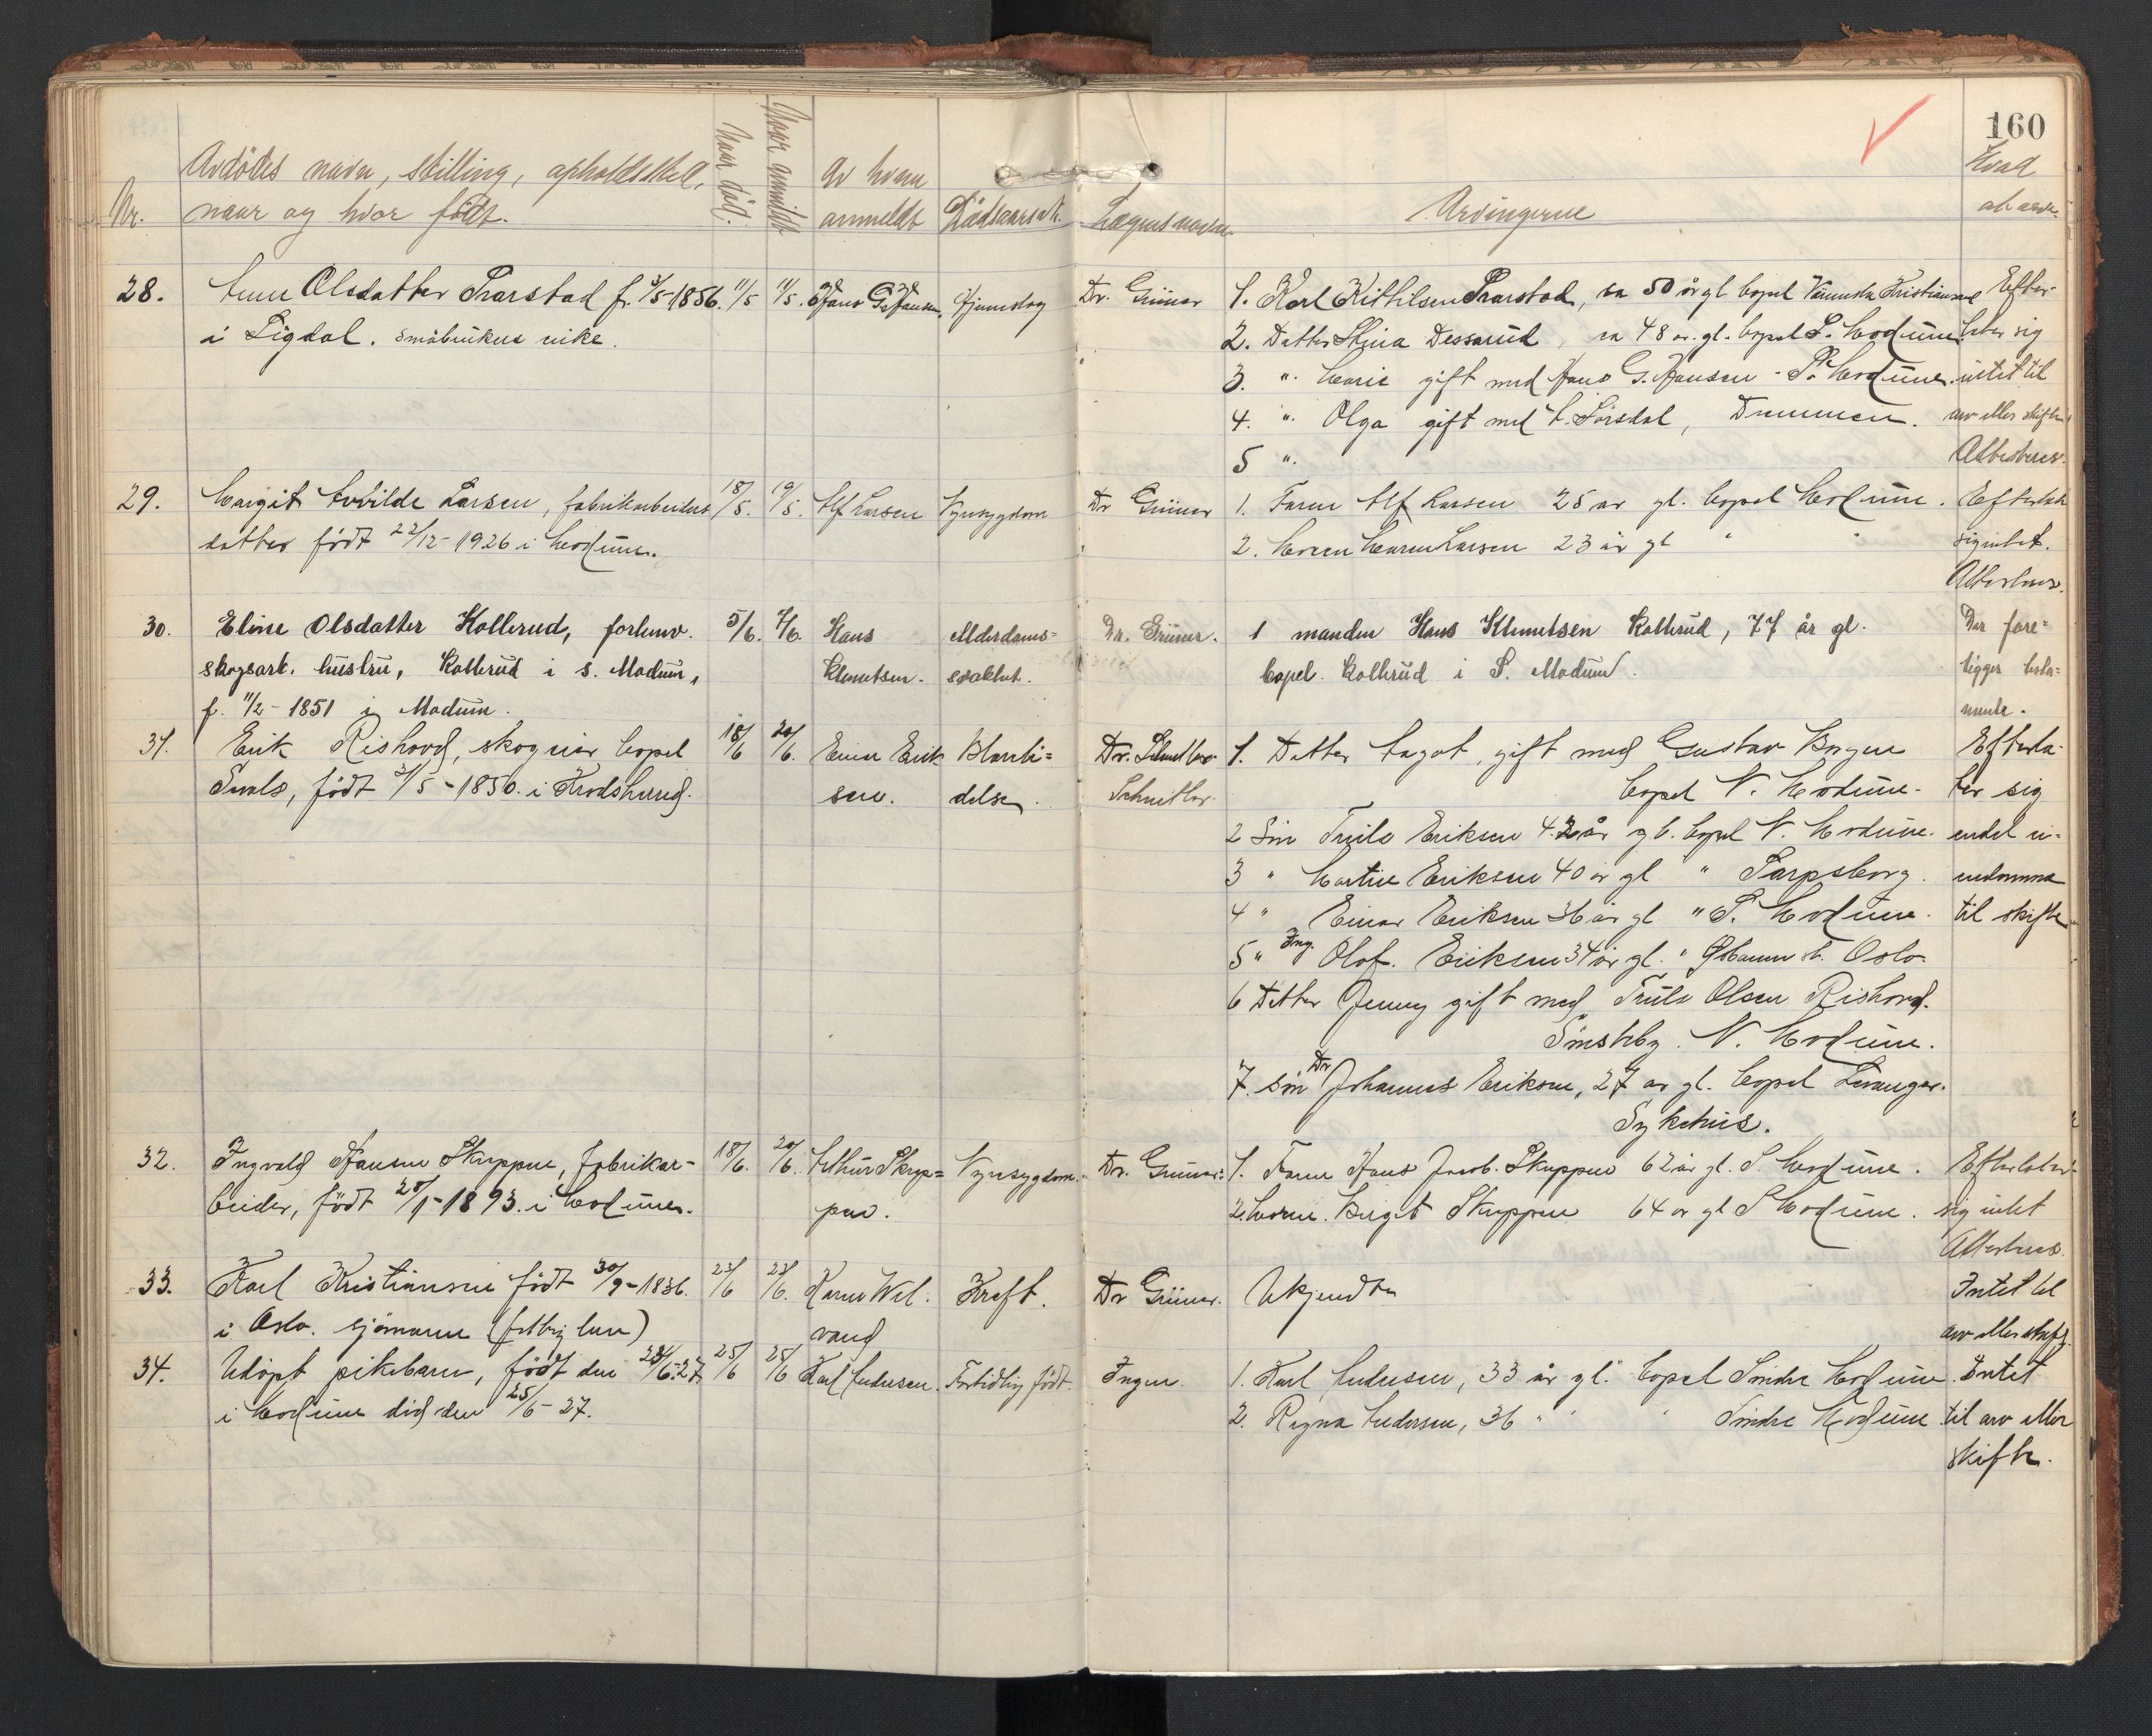 160
Nr.
Avdødes navn, stilling, opholdssted,
naar og hvor født.
Naar død.
Naar anmeldt
Av hvem
anmeldt
Dødsaarsak.
Lægens navn.
Arvingerne
Hvad
at arve.
28.
Anne Olsdatter Prarstad f. 3/5-1856.
i Sigdal. småbrukers enke.
11/5
11/5.
Hans G. Hansen.
Hjerneslag
Dr. Grüner
1. Karl Kittilsen Prarstad, ca 50 år gl bopel Kristiansand
2. Datter Stina Dessarud, ca 48 år. gl. bopel S. Modum
3. ". Marie gift med Hans G. Hansen - S. Modum.
4. ". Olga gift med A. Sørsdal, Drammen.
5 ".
Efter-
later sig
intet til
arv eller skifte
Attesteres.
29.
Margit Alvilde Larsen, fabrikarbeiders
datter født 22/12-1926 i Modum.
18/5.
19/5.
Alf Larsen
Nyresygdom
Dr Grüner
1. Faren Alf Larsen 25 år gl. bopel Modum.
2. Moren Maren Larsen 23 år gl " "
Efterlater
sig intet.
Attesteres.
30.
Eline Olsdatter Kollerud, forhenv.
skogsarb. hustru, Kollerud i S. Modum,
f. 11/2-1851 i Modum.
5/6.
7/6.
Hans
Knutsen.
Alderdoms=
svakhet.
Dr. Grüner.
1 manden Hans Knutsen Kollerud, 77 år gl.
bopel. Kollerud i S. Modum.
Der fore=
ligger testa=
mente.
31.
Erik Rishovd, skogeier bopel
født 31/5-1850. i Krødsherred.
18/6
20/6.
Einar Erik
sen.
Blodfor=
Dr.
Schnitler.
1. Datter Aagot, gift med Gustav Bergan
bopel N. Modum.
2 Søn Truls Eriksen 42 år gl. bopel N. Modum.
3 " Martin Eriksen 40 år gl " Sarpsborg.
4 " Einar Eriksen 36 år gl " S. Modum.
5 " Ing. Olaf. Eriksen 34 år gl. " Oslo.
6 Datter Jenny gift med Truls Olsen Rishovd.
N. Modum.
7. søn Dr Johannes Eriksen, 27 år gl. bopel Levanger.
Sykehus.
Efterla-
ter sig
endel ei=
endomme
til skifte
32.
Ingvald Hansen Skuppen, fabrikar-
beider, født 20/1-1893. i Modum.
18/6.
20/6.
Arthur Skup=
pen.
Nyresygdom.
Dr. Grüner.
1. Faren Hans Jacob. Skuppen 62 år gl. S. Modum.
2. Moren. Birgit Skuppen 64 år gl S Modum.
Efterlater
sig intet
Attesteres.
33.
Karl Kristiansen født 30/9-1836.
i Oslo. sjømann (fattig lem)
22/6
23/6.
Karen Wel-
vang
Kreft.
Dr Grüner.
Ukjendte
Intet til
arv eller skifte.
34.
Udøpt pikebarn, født den 23/6-27.
i Modum død den 25/6-27.
25/6
25/6
Karl Andersen.
Fortidlig født.
Ingen.
1. Karl Andersen, 33 år gl. bopel Søndre Modum.
2. Ragna Andersen, 36 " " " Søndre Modum
Intet
til arv eller
skifte.